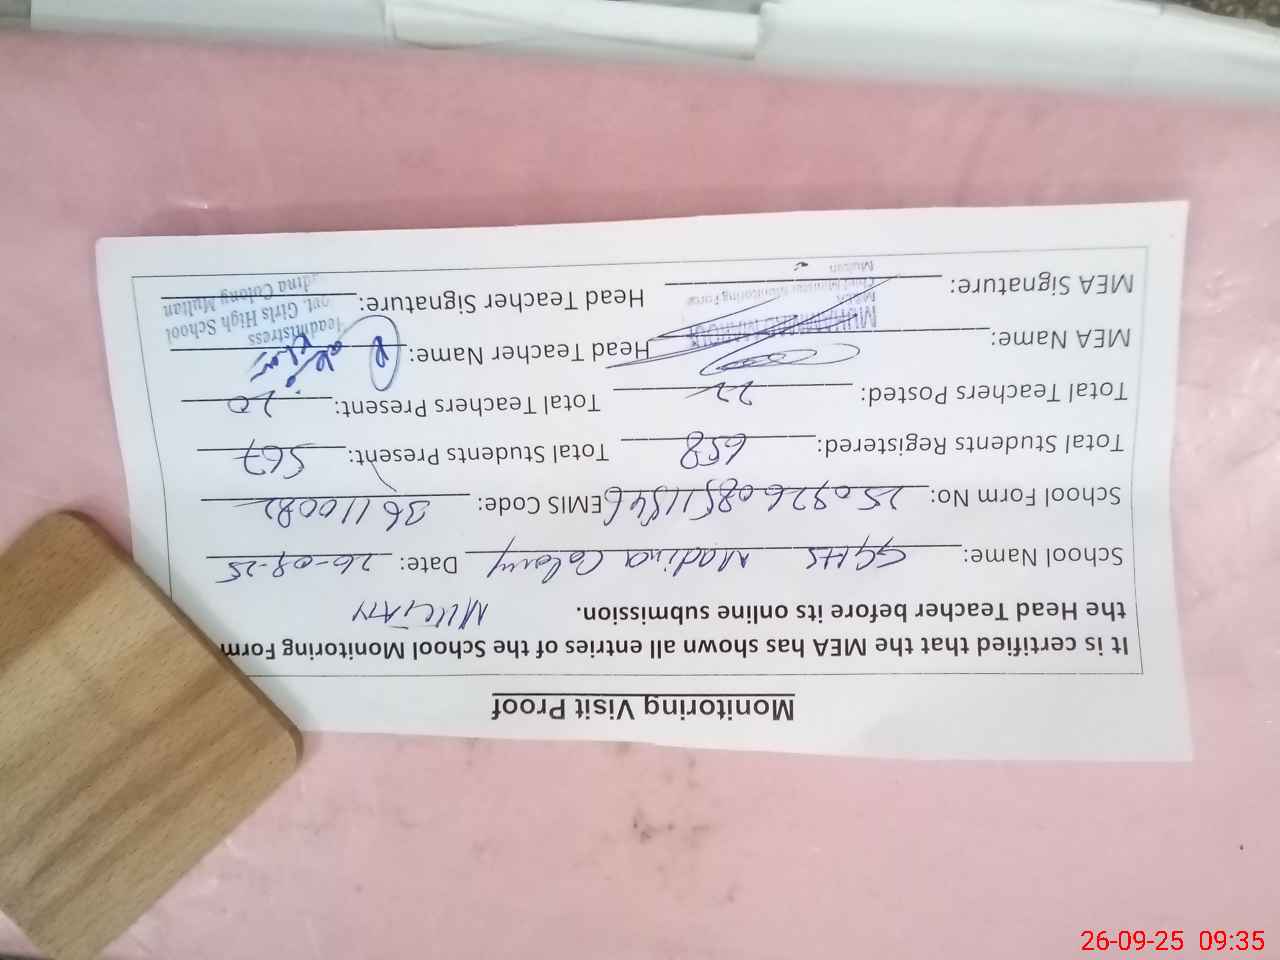 Monitoring Visit Proof
It is certified that the MEA has shown all entries of the School Monitoring Form
the Head Teacher before its online submission. MULTAN
School Name: GGHS Madina Colony Date: 26-09-25
School Form No: 25092608511546 EMIS Code: 36110082
Total Students Registered: 658 Total Students Present: 567
Total Teachers Posted: 22 Total Teachers Present: 20
MEA Name: Head Teacher Name:
MEA Signature: Head Teacher Signature:
MUHAMMAD
MEA
Chief Minister Monitoring Force
Multan
Headmistress
Govt. Girls High School
Madina Colony Multan
26-09-25 09:35